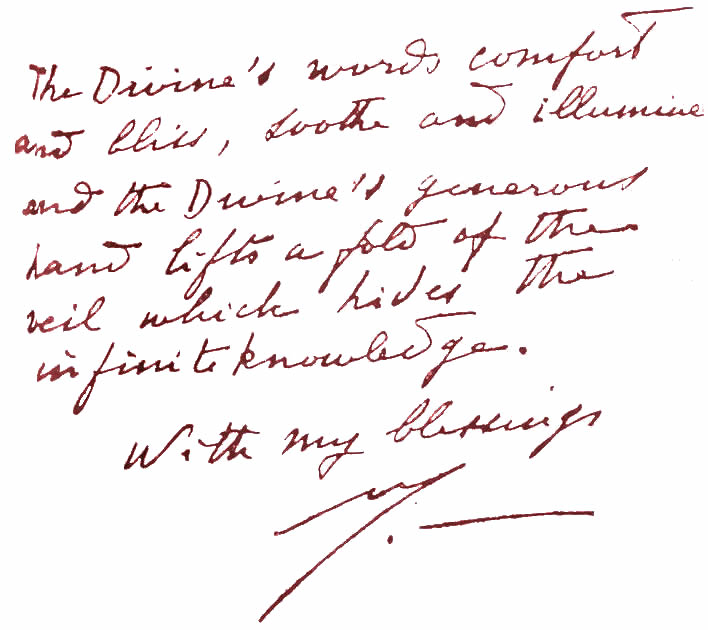 The Divine's words comfort
and bliss, soothe and illumine
and the Divine's generous
hand lifts a fold of the
veil which hides the
infinite knowledge.
With my blessings